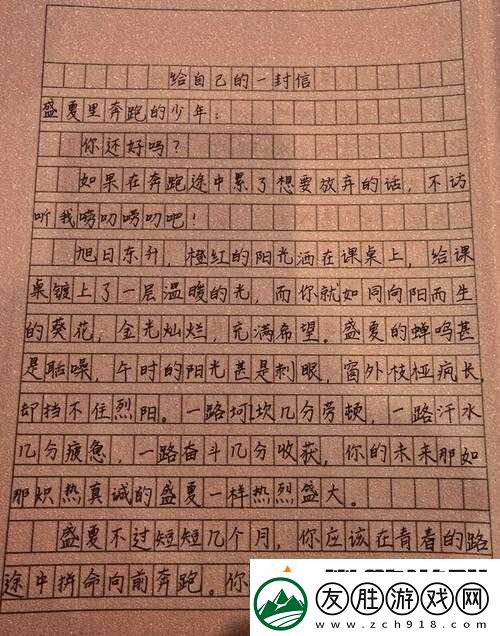 给自己的一封信
盛夏里奔跑的少年：
你还好吗？
如果在奔跑途中累了想要放弃的话，不访
听我唠叨唠叨吧！
旭日东升，橙红的阳光洒在课桌上，给课
桌镀上了一层温暖的光，而你就如同向阳而生
的葵花，金光灿烂，充满希望。盛夏的蝉鸣甚
是聒噪，午时的阳光甚是刺眼，窗外枝桠疯长，
却挡不住烈阳。一路坷坎几分劳顿，一路汗水
几分疲惫，一路奋斗几分收获，你的未来那如
那炽热真诚的盛夏一样热烈盛大。
盛夏不过短短几个月，你应该在青春的路
途中拼命向前奔跑。你
友胜游戏网
www.zch918.com